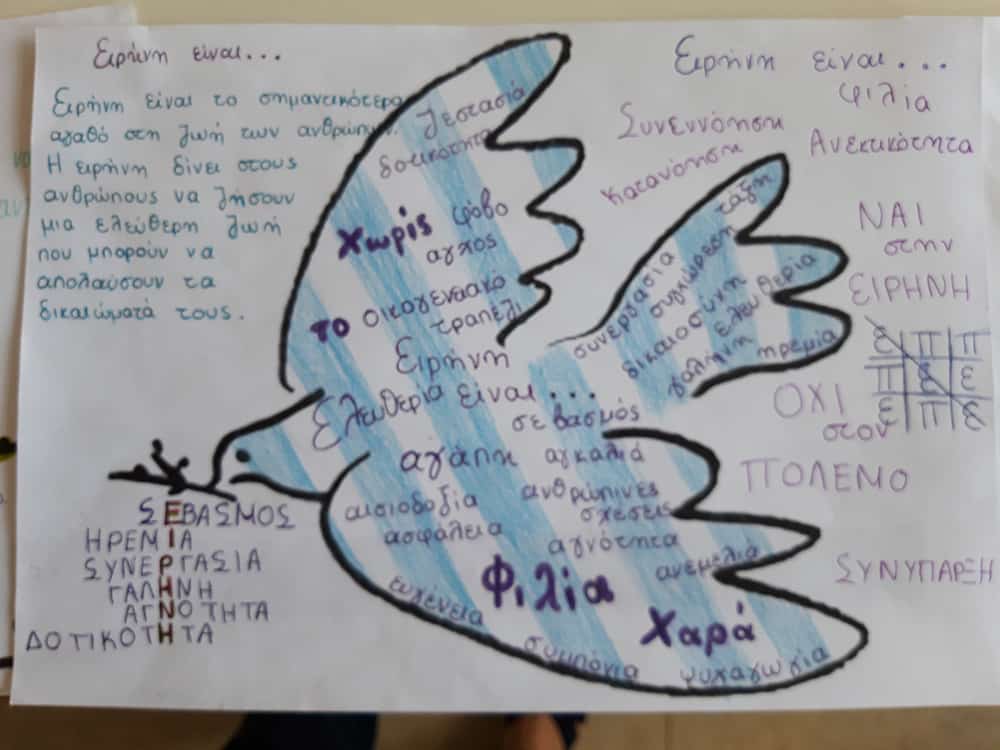 Ειρήνη είναι...
Ειρήνη είναι το σημαντικότερο
αγαθό στη ζωή των ανθρώπων.
Η ειρήνη δίνει στους
ανθρώπους να ζήσουν
μια ελεύθερη ζωή
που μπορούν να
απολαύσουν τα
δικαιώματά τους.
ζεστασιά
δοτικότητα
χωρίς φόβο
αγχος
το οικογενειακό
τραπέζι
Ειρήνη
Ελευθερία είναι...
σεβασμός
αγάπη αγκαλιά
αισιοδοξία ανθρώπινες
σχέσεις
ασφάλεια
αγνότητα
ανεμελιά
ευγένεια
Φιλία
Χαρά
συμπόνια
ψυχαγωγία
συνεργασία
συγχώρεση
τάξη
δικαιοσύνη
ελευθερία
γαλήνη
ηρεμία
Ειρήνη είναι...
φιλία
Συνεννόηση
Ανεκτικότητα
Κατανόηση
ΝΑΙ
στην
ΕΙΡΗΝΗ
ε π π
π ε ε
ε π ε
ΟΧΙ
στον
ΠΟΛΕΜΟ
ΣΥΝΥΠΑΡΞΗ
ΣΕΒΑΣΜΟΣ
ΗΡΕΜΙΑ
ΣΥΝΕΡΓΑΣΙΑ
ΓΑΛΗΝΗ
ΑΓΝΟΤΗΤΑ
ΔΟΤΙΚΟΤΗΤΑ